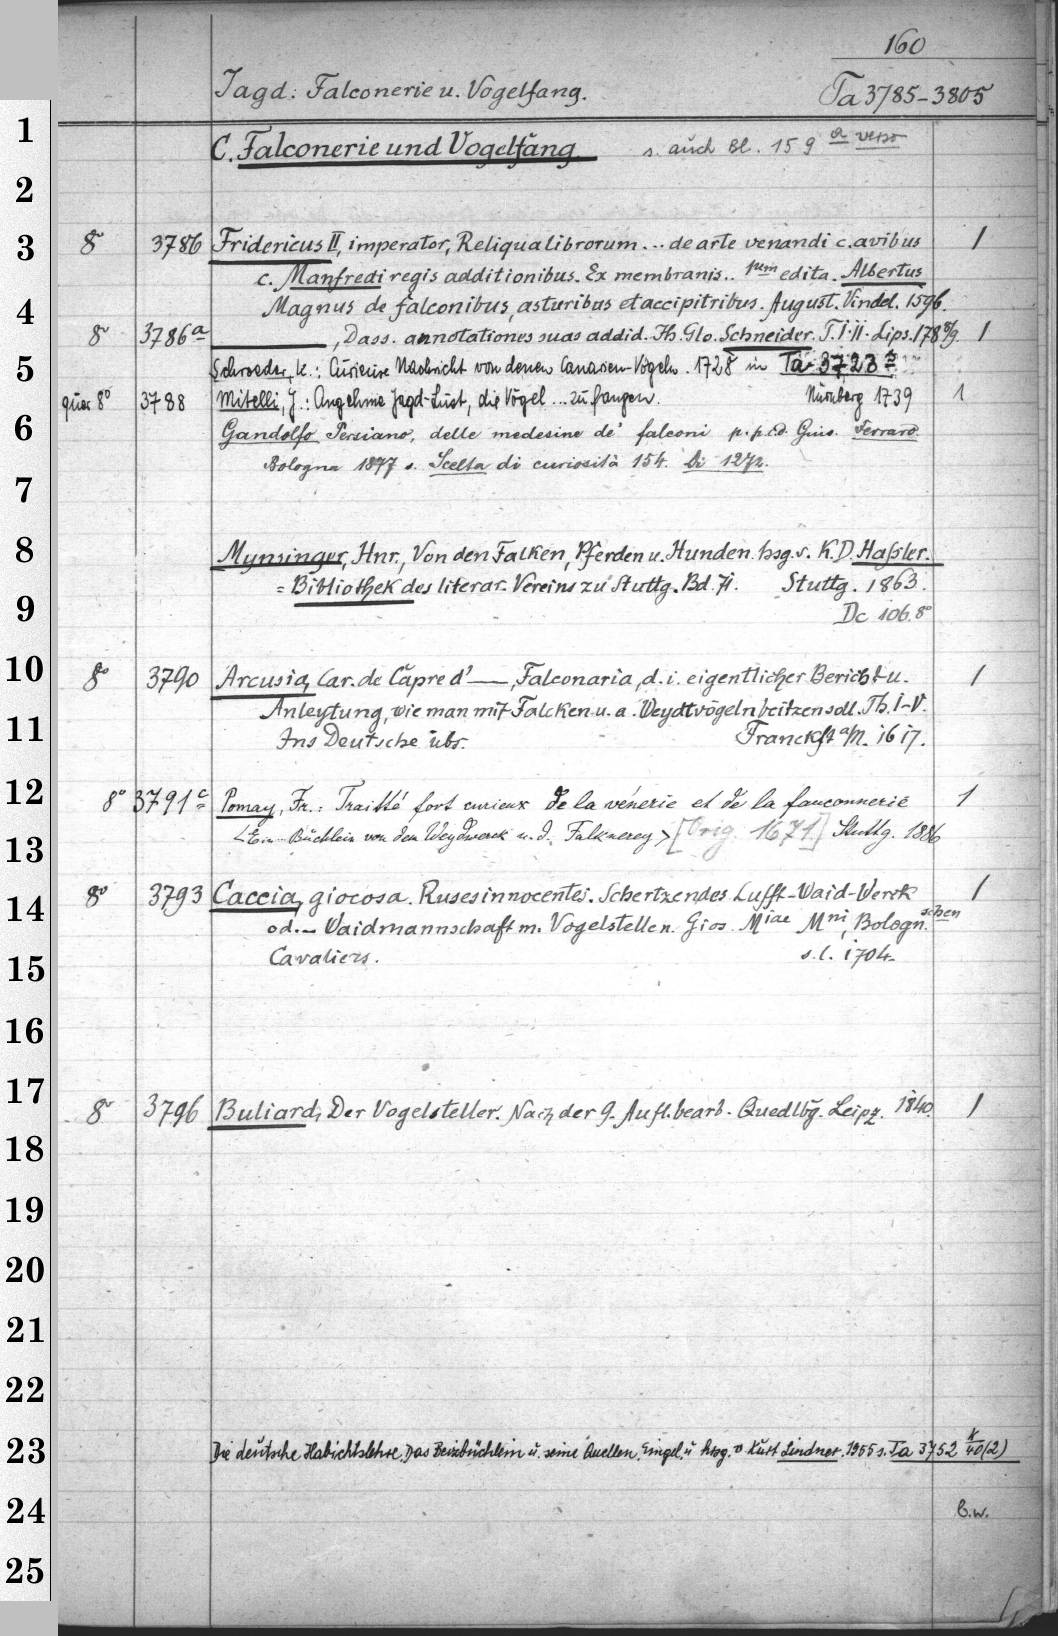 160
Jagd: Falconerie u. Vogelfang. Ta 3785-3805
1
C. Falconerie und Vogelfang. s. auch Bl. 159 a verso
2
3
8° 3786 Fridericus II, imperator, Reliqua librorum ... de arte venandi c. avibus 1
c. Manfredi regis additionibus. Ex membranis.. pem edita. Albertus
4
Magnus de falconibus, asturibus et accipitribus. August. Vindel. 1596.
8° 3786a ———, Dass. annotationes suas addid. Jh. Glo. Schneider. T. I-II. Lips. 1788/9. 1
5
Schroeder, K.: Curieuse Nachricht von denen Canarien-Vögeln. 1728 in Ta 3723
quer 8° 3788 Mitelli, J.: Angehme Jagd-Lust, die Vögel ... zu fangen. Nürnberg 1739 1
6
Gandolfo Persiano, delle medesine de' falconi p. p. c. d. Gius. Ferraro.
Bologna 1877 s. Scelta di curiosità 154. Di 127z.
7
8
Mynsinger, Hnr., Von den Falken, Pferden u. Hunden. hsg. v. K. D. Haßler.
= Bibliothek des literar. Vereins zu Stuttg. Bd. 71. Stuttg. 1863.
9
Dc 106. 8°
10
8° 3790 Arcusia, Car. de Capre d' —, Falconaria, d. i. eigentlicher Bericht u. 1
Anleytung, wie man mit Falcken u. a. Weydtvögeln beitzen soll. Th. I-V.
11
Ins Deutsche übs. Franckft a/M. 1617.
12
8° 3791c Pomay, Fr.: Traitté fort curieux de la vénerie et de la fauconnerie 1
<Ein Büchlein von dem Weydwerck u. d. Falknerey> [Orig. 1671] Stuttg. 1886
13
8° 3793 Caccia, giocosa. Ruses innocentes. Schertzendes Lufft-Waid-Werck 1
14
od. - Waidmannschaft m. Vogelstellen. Gios. Miae Mni, Bologn.schen
Cavaliers. s. l. 1704.
15
16
17
8° 3796 Buliard, Der Vogelsteller. Nach der 9. Aufl. bearb. Quedlbg. Leipz. 1840. 1
18
19
20
21
22
23
Die deutsche Habichtslehre. Das Beizbüchlein u. seine Quellen. Eingel. u. hrsg. v. Kurt Lindner. 1955 s. Ta 3752 k/40(2)
24
b.w.
25